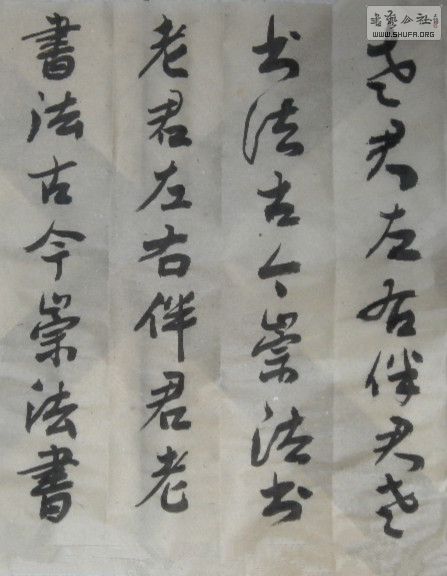 老君左右伴君老
书法古今崇法书
老君左右伴君老
書法古今崇法書
書藝公社
WWW.SHUFA.ORG